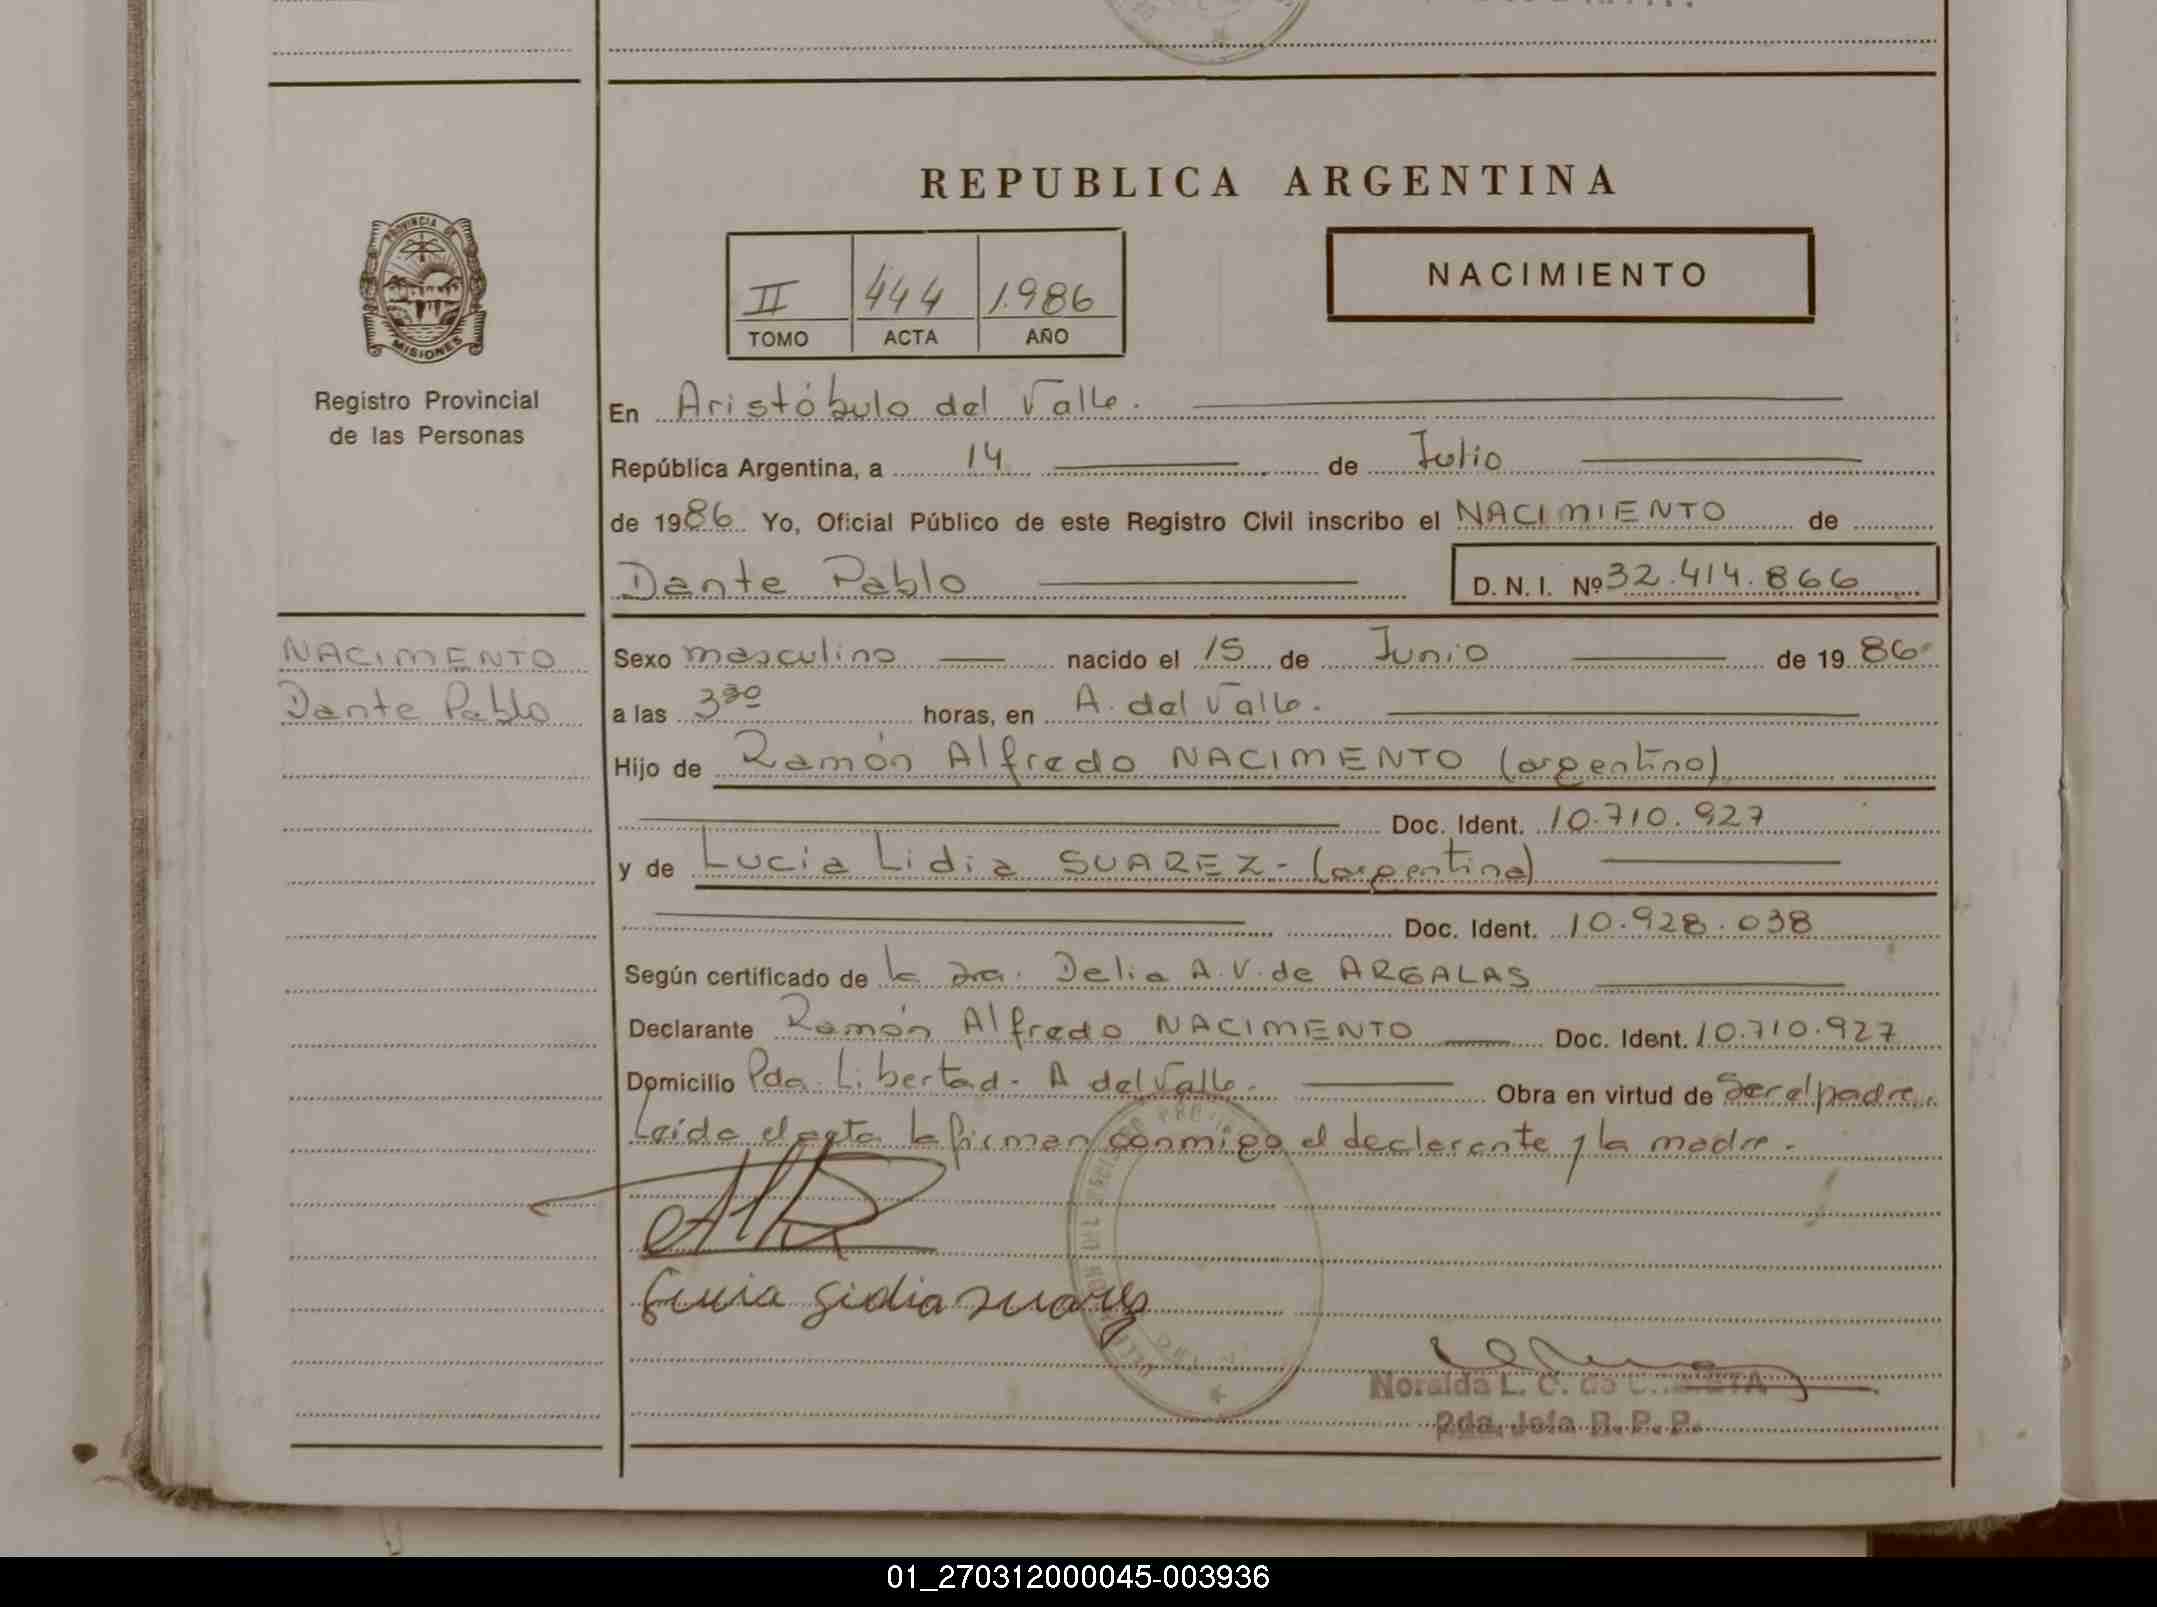 REPUBLICA ARGENTINA
PROVINCIA DE
MISIONES
Registro Provincial
de las Personas
II 444 1.986
TOMO ACTA AÑO
NACIMIENTO
En Aristóbulo del Valle.
República Argentina, a 14 de Julio
de 1986 Yo, Oficial Público de este Registro Civil inscribo el NACIMIENTO de
Dante Pablo D. N. I. Nº 32.414.866
NACIMENTO
Dante Pablo
Sexo masculino nacido el 15 de Junio de 1986
a las 330 horas, en A. del Valle.
Hijo de Ramón Alfredo NACIMENTO (argentino)
Doc. Ident. 10.710.927
y de Lucia Lidia SUAREZ - (argentina)
Doc. Ident. 10.928.038
Según certificado de la sra. Delia A. V. de ARGALAS
Declarante Ramón Alfredo NACIMENTO Doc. Ident. 10.710.927
Domicilio Pda. Libertad - A del Valle. Obra en virtud de ser el padre.
Leída el acta la firman conmigo el declarante y la madre.
Lucia Lidia Suarez
Noralda L. C. de
Pda. Jefa R. P. P.
01_270312000045-003936